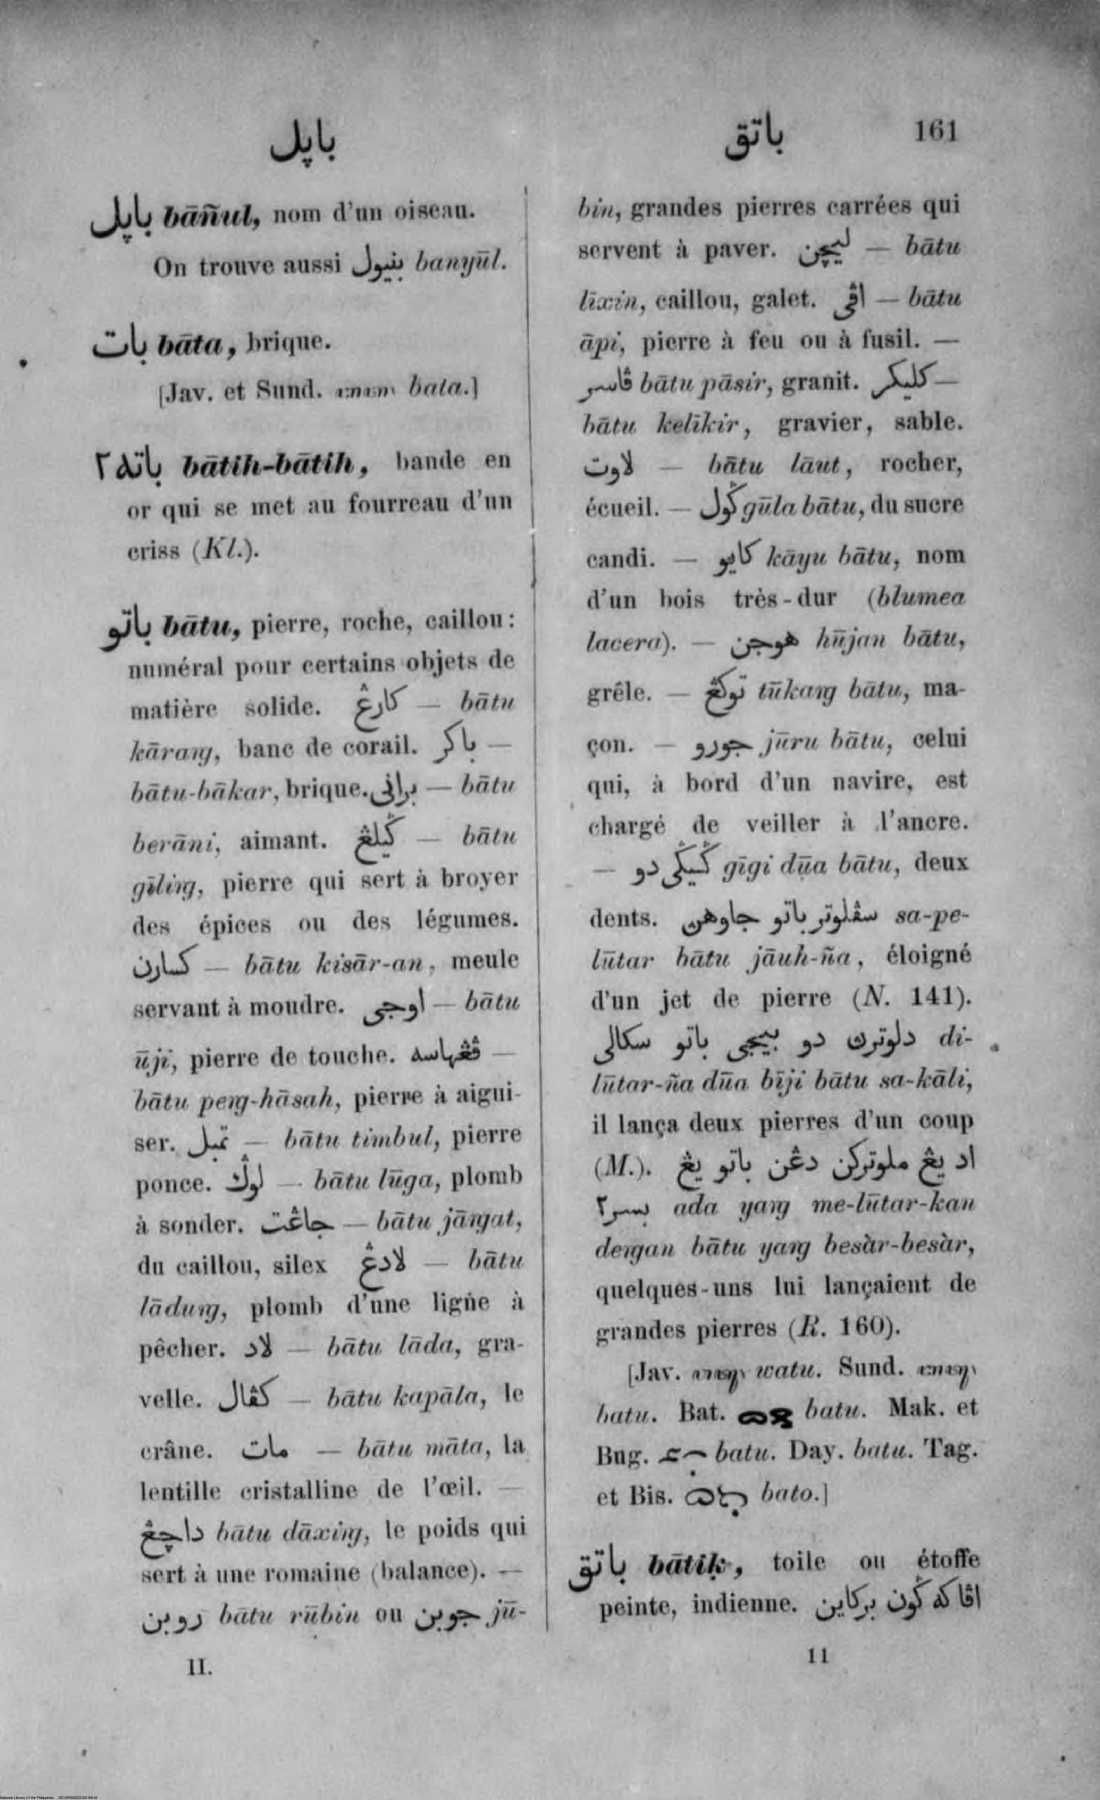 باپل
باتق 161
باپل bāñul, nom d'un oiseau.
On trouve aussi بنيول banyūl.
بات bāta, brique.
[Jav. et Sund. bata.]
باته٢ bātih-bātih, bande en
or qui se met au fourreau d'un
criss (Kl.).
باتو bātu, pierre, roche, caillou:
numéral pour certains objets de
matière solide. كارڠ — bātu
kāraŋ, banc de corail. باكر —
bātu-bākar, brique. براني — bātu
berāni, aimant. ڬيليڠ — bātu
gīliŋ, pierre qui sert à broyer
des épices ou des légumes.
كسارن — bātu kisār-an, meule
servant à moudre. اوجي — bātu
ūji, pierre de touche. ڤڠهاسه —
bātu peŋ-hāsah, pierre à aigui-
ser. تمبل — bātu timbul, pierre
ponce. لوڬ — bātu lūga, plomb
à sonder. جاڠت — bātu jāŋat,
du caillou, silex لادڠ — bātu
lāduŋ, plomb d'une ligne à
pêcher. لاد — bātu lāda, gra-
velle. كڤال — bātu kapāla, le
crâne. مات — bātu māta, la
lentille cristalline de l'œil. —
داچڠ bātu dāxiŋ, le poids qui
sert à une romaine (balance). —
روبن bātu rūbin ou جوبن jū-
II.
bin, grandes pierres carrées qui
servent à paver. ليچن — bātu
līxin, caillou, galet. اڤي — bātu
āpi, pierre à feu ou à fusil. —
ڤاسر bātu pāsir, granit. كليكر —
bātu kelīkir, gravier, sable.
لاوت — bātu lāut, rocher,
écueil. — ڬول gūla bātu, du sucre
candi. — كايو kāyu bātu, nom
d'un bois très-dur (blumea
lacera). — هوجن hūjan bātu,
grêle. — توكڠ tūkaŋ bātu, ma-
çon. — جورو jūru bātu, celui
qui, à bord d'un navire, est
chargé de veiller à l'ancre.
— ڬيڬي دو gīgi dūa bātu, deux
dents. سڤلوتر باتو جاوهن sa-pe-
lūtar bātu jāuh-ña, éloigné
d'un jet de pierre (N. 141).
دلوترن دو بيجي باتو سكالي di-
lūtar-ña dūa bīji bātu sa-kāli,
il lança deux pierres d'un coup
(M.). اد يڠ ملوتركن دڠن باتو يڠ
بسر٢ ada yaŋ me-lūtar-kan
deŋan bātu yaŋ besàr-besàr,
quelques-uns lui lançaient de
grandes pierres (R. 160).
[Jav. watu. Sund.
batu. Bat. batu. Mak. et
Bug. batu. Day. batu. Tag.
et Bis. bato.]
باتق bātiḳ, toile ou étoffe
peinte, indienne. اڤاكه ڬون بركاين
11